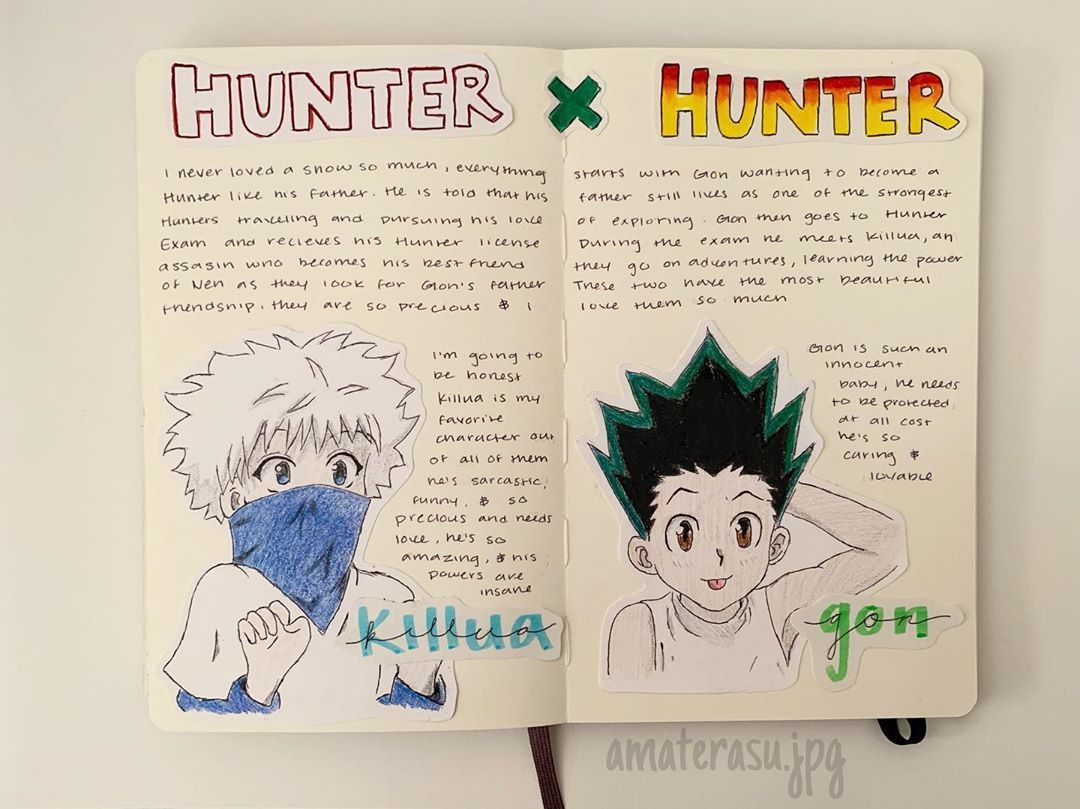 HUNTER X HUNTER
I never loved a show so much, everything starts with Gon wanting to become a
Hunter like his father. He is told that his father still lives as one of the strongest
Hunters traveling and pursuing his love of exploring. Gon then goes to Hunter
Exam and recieves his Hunter license During the exam he meets Killua, an
assasin who becomes his best friend they go on adventures, learning the power
of Nen as they look for Gon's father These two have the most beautiful
friendship. they are so precious & I love them so much
I'm going to
be honest
Killua is my
favorite
character out
of all of them
he's sarcastic,
funny, & so
precious and needs
love, he's so
amazing, & his
powers are
insane
killua
killua
Gon is such an
innocent
baby, he needs
to be protected
at all cost
he's so
caring &
lovable
gon
gon
amaterasu.jpg